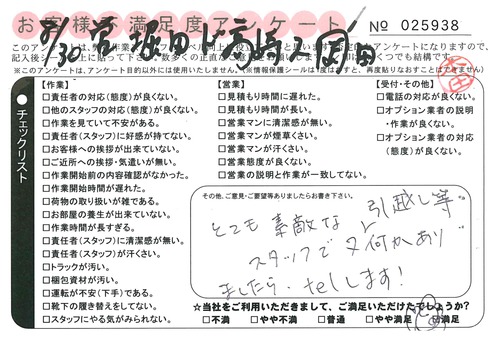 お客様不満足度アンケート
No 025938
8/30
このアンケートは、
※このアンケートは、アンケート目的以外には使用いたしません。
チェックリスト
【作業】
□責任者の対応(態度)が良くない。
□他のスタッフの対応(態度)が良くない。
□作業を見ていて不安がある。
□責任者(スタッフ)に好感が持てない。
□お客様への挨拶が出来ていない。
□ご近所への挨拶・気遣いが無い。
□作業開始前の内容確認がなかった。
□作業開始時間が遅れた。
□荷物の取り扱いが雑である。
□お部屋の養生が出来ていない。
□作業時間が長すぎる。
□責任者(スタッフ)に清潔感が無い。
□責任者(スタッフ)が汗くさい。
□トラックが汚い。
□梱包資材が汚い。
□運転が不安(下手)である。
□靴下の履き替えをしてない。
□スタッフにやる気がみられない。
【営業】
□見積もり時間に遅れた。
□見積もり時間が長い。
□営業マンに清潔感が無い。
□営業マンが煙草くさい。
□営業マンが汗くさい。
□営業態度が良くない。
□営業の説明と作業が一致してない。
【受付・その他】
□電話の対応が良くない。
□オプション業者の説明
・作業が良くない。
□オプション業者の対応
(態度)が良くない。
その他、ご意見・ご要望等ありましたらお書き下さい。
とても素敵な引越し等
スタッフで又何かあり
ましたら、telします!
☆当社をご利用いただきまして、ご満足いただけたでしょうか?
□不満 □やや不満 □普通 □やや満足 □満足